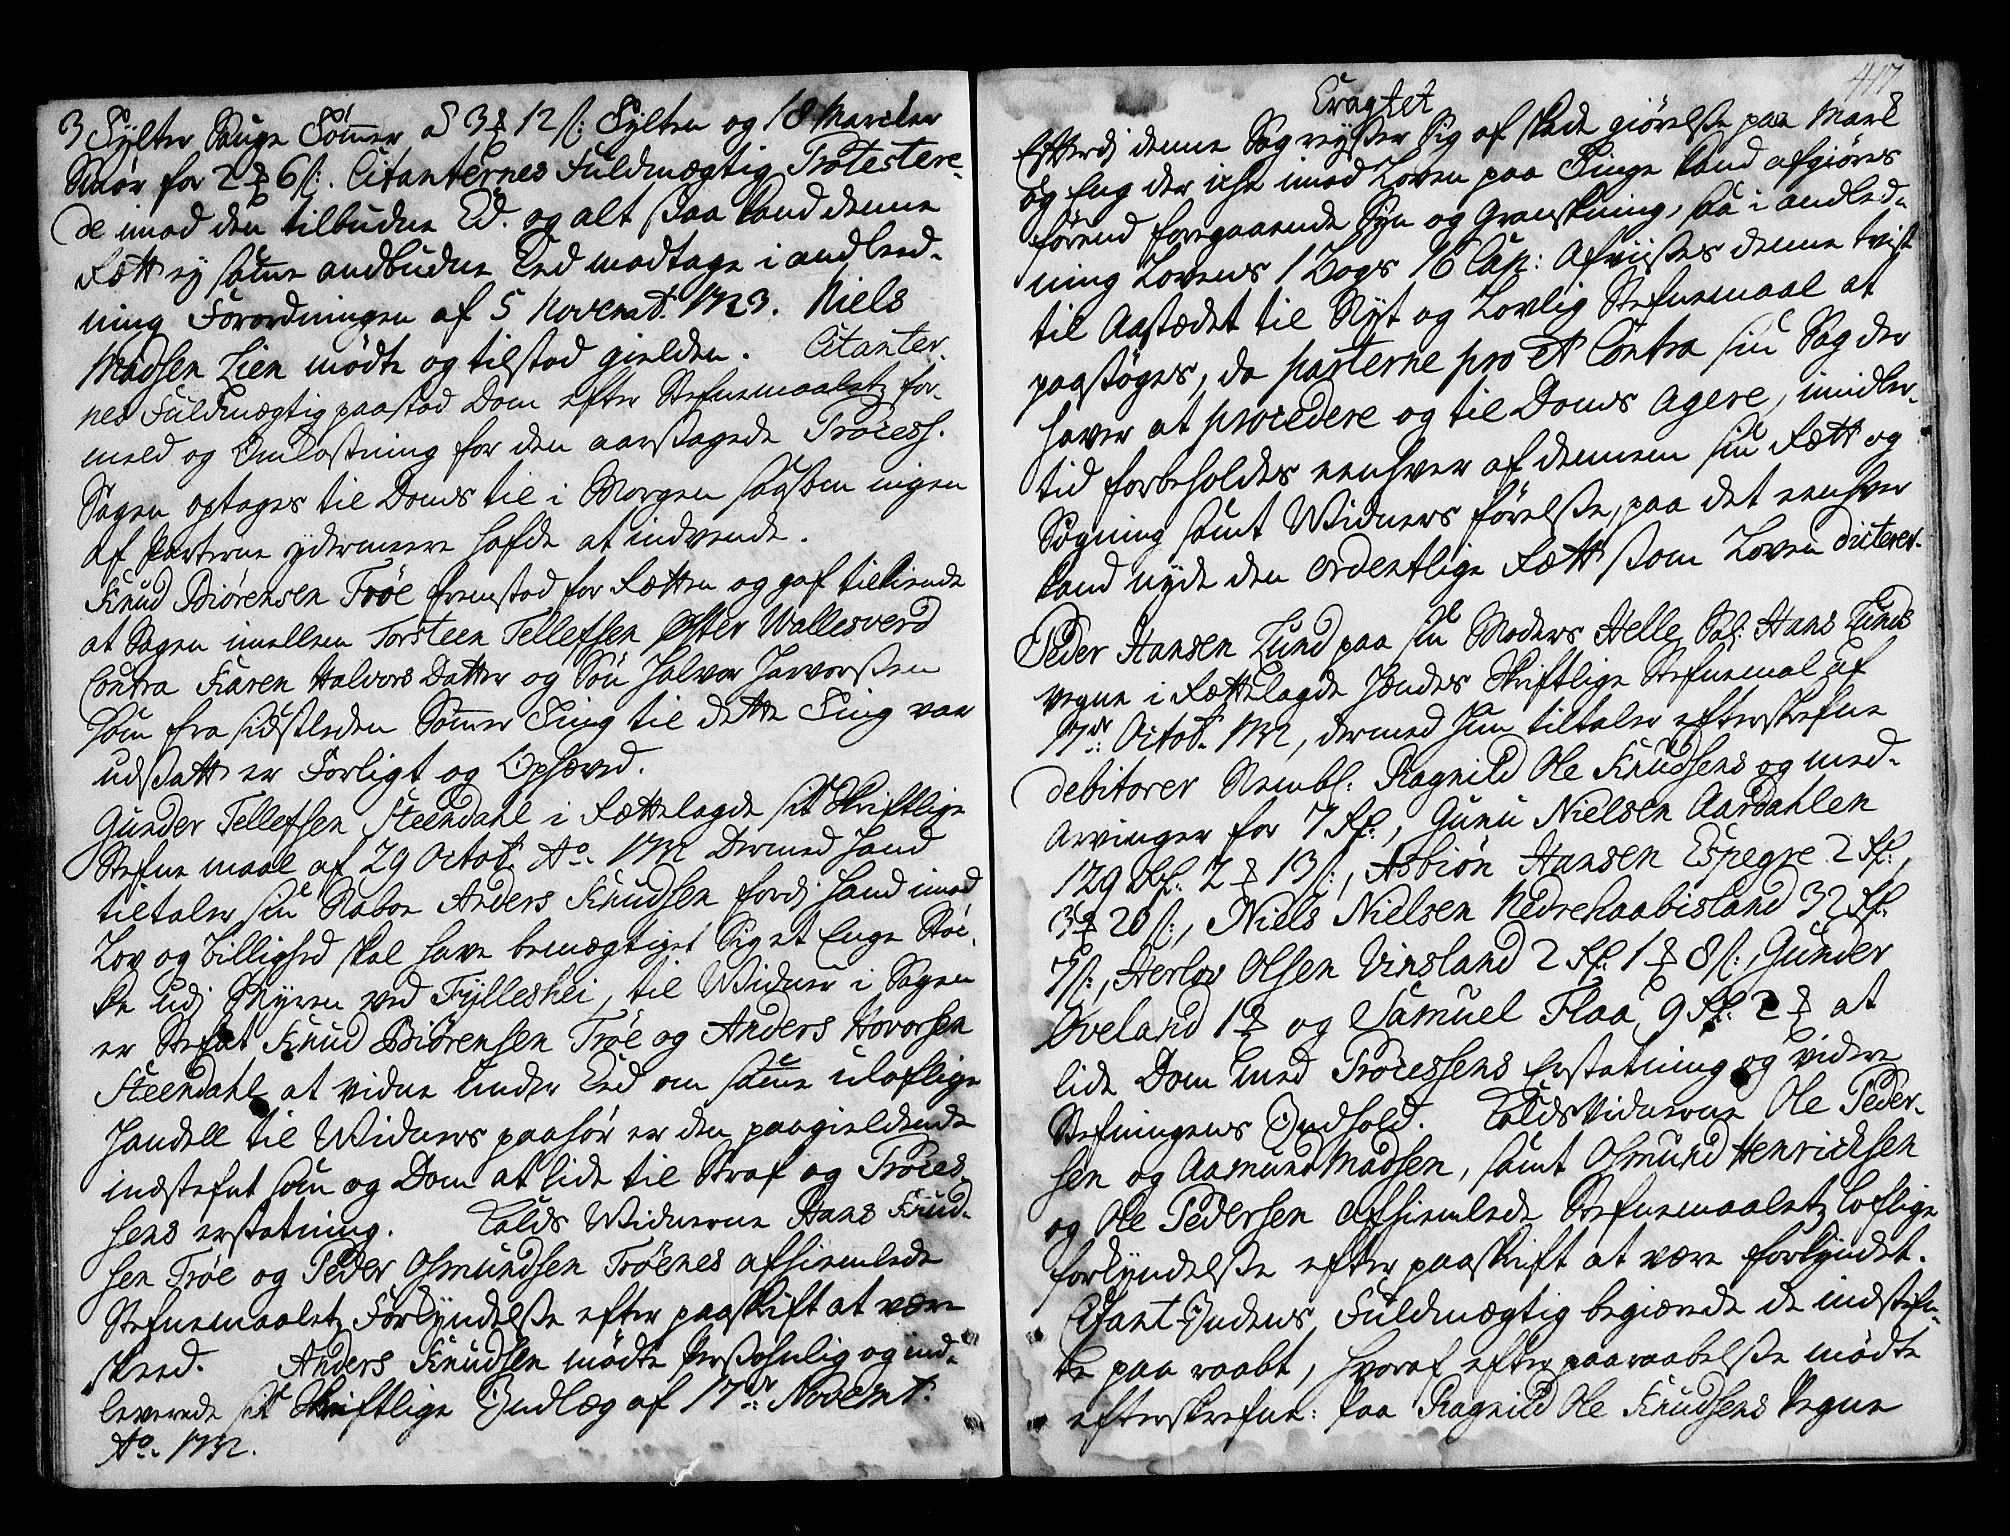 3 Tylter Sauge Tømmer a 3 ort 12 s: Tylten og 18 Marcker
Smør for 2 ort 6 s:. Citanternes Fuldmægtig Protestere-
de imod den tilbudne Ed. og alt saa kand denne
Rætt ej samme andbudne Eed modtage i andleed-
ning Forordningen af 5 Novembr. 1723. Niels
Madsen Lien mødte og tilstod gielden. Citanter-
nes Fuldmægtig paastod Dom efter Stefnemaaletz for-
meld og Omkostning for den aarsagede Process.
Sagen optages til Doms til i Morgen saasom ingen
af parterne ydermeere hafde at indvende.
Knud Biørensen Trøe fremstod for Rætten og gaf tilkiende
at Sagen imellem Torsteen Tellefsen Øster Wallesverd
Contra Karen Halvors Datter og Søn Halvor Harvorssen
som fra sidstleden Sommer Ting til dette Ting var
udsatt er Forligt og Ophæved.
Gunder Tellefsen Steendahl i Rættelagde sit Skriftlige
Stefne maal af 29 Octobr. Ao. 1732 Dermed hand
tiltaler sin Naboe Anders Knudsen fordj hand imod
Lov og billighed skal have bemægtiget sig et Enge Støc-
ke udj Myren ved Fylleshei, til Widner i Sagen
er Stefnt Knud Biørensen Trøe og Anders Hovorsen
Steendahl at vidne under Eed om samme uloflige
Handell til Widners paahør er den paagieldende
indstefnt som og Dom at lide til Straf og Proces-
sens erstatning. Kalds Widnerne Hans Knud-
sen Trøe og Peder Osmundsen Trøenes afhiemlede
Stefnemaaletz Forkyndelsse efter paaskrift at være
skeed. Anders Knudsen mødte Persohnlig og ind-
leverede sit Skriftlige Indlæg af 17de Novembr:
Ao. 1732.
417
Eragtet
Efterdj denne Sag reysser sig af skade giørelsse paa Mark
og Eng der icke imod Loven paa Tinge kand afgiøres
førend foregaaende Syn og Granskning, saa i andled-
ning Lovens 1 Bogs 16 Cap: Afviisses denne tvist
til Aastædet til Nyt og Lovlig Stefnemaal at
paasøges, da parterne pro et Contra sin Sag der
haver at procedere og til Doms Agere, imidler-
tid forbeholdes eenhver af dennem sin Rætt og
Søgning samt Widners førelsse, paa det eenhver
kand nyde den ordentlige Rætt som Loven dicterer.
Peder Hansen Lund paa sin Moders Helle Sal: Hans Lunds
vegne i Rættelagde hendes Skriftlige Stefnemal af
17de: Octobr. 1732, dermed hun tiltaler efterskrefne
debitorer Nembl: Ragnild Ole Knudsens og med-
Arvinger for 7 Rd:, Gunu Nielsen Aardahlen
129 Rd: 2 ort 13 s:, Asbiøn Hansen Espegre 2 Rd:,
3 ort 20 s:, Niels Nielsen Nedrehaabisland 32 Rd.
7 s:, Herlov Olsen Vinsland 2 Rd. 1 ort 8 s:, Gunder
Øveland 1 ort og Samuel Flaa 9 Rd: 2 ort at
lide Dom med Processens Erstatning og videre
Stefningens Indhold. Kalds Vidnerne Ole Peder-
sen og Aamund Madsen, samt Osmund Henricksen
og Ole Pedersen afhiemlede Stefnemaaletz Loflige
forkyndelsse efter paaskrift at være forkyndet.
Citant Indens Fuldmægtig begiærede de indstefn-
te paa raabt, hvoraf efter paaraabelsse mødte
efterskrefne: paa Ragnild Ole Knudsens Vegne